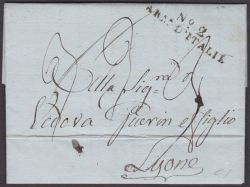 No. 2.
ARM. D'ITALIE
Alla Sig.ra
Vedova Guerin e figlio
Lyone